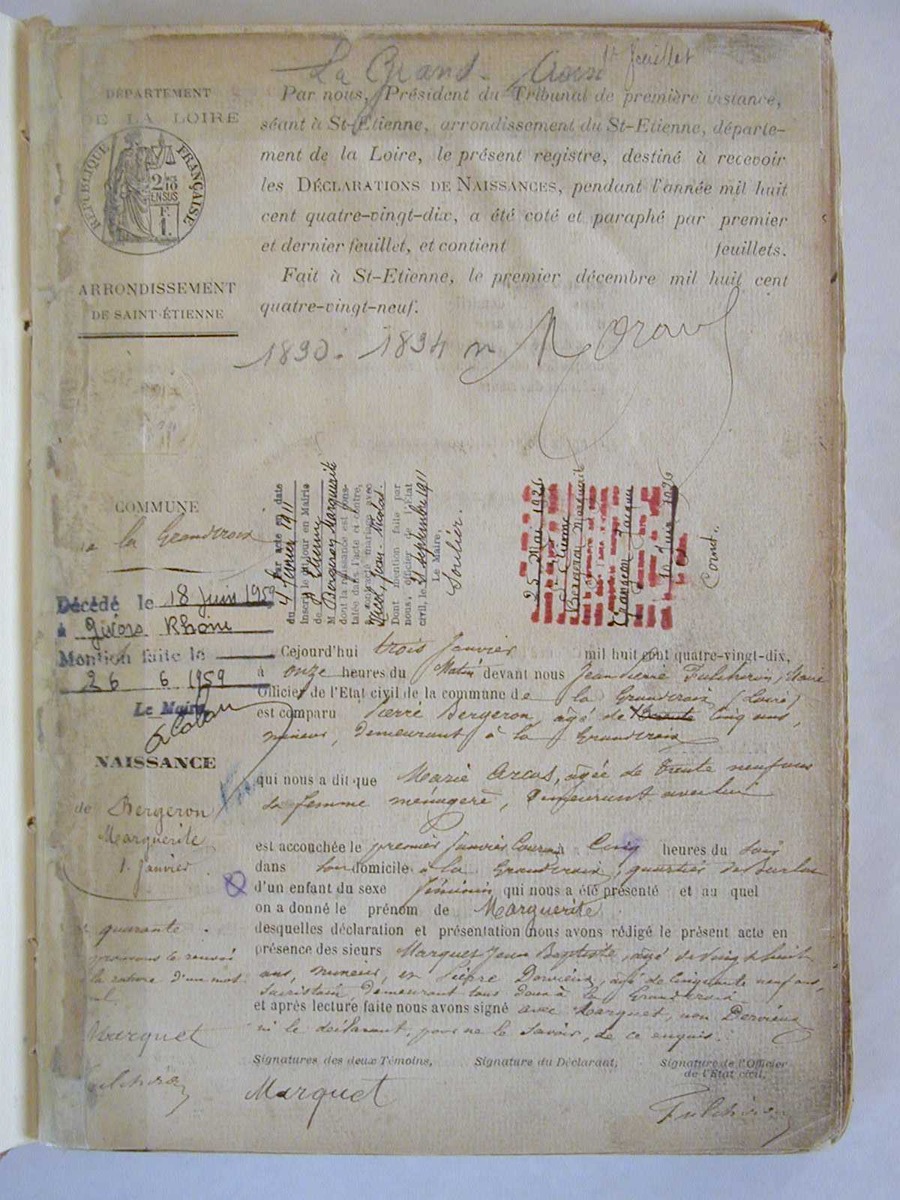 La Grand-Croix 1er feuillet
DÉPARTEMENT
DE LA LOIRE
RÉPUBLIQUE FRANÇAISE
2/10
EN SUS
Par nous, Président du Tribunal de première instance,
séant à St-Etienne, arrondissement du St-Etienne, départe-
ment de la Loire, le présent registre, destiné à recevoir
les DÉCLARATIONS DE NAISSANCES, pendant l'année mil huit
cent quatre-vingt-dix, a été coté et paraphé par premier
et dernier feuillet, et contient feuillets.
Fait à St-Etienne, le premier décembre mil huit cent
quatre-vingt-neuf.
ARRONDISSEMENT
DE SAINT-ÉTIENNE
1890. 1894
COMMUNE
de la Grandcroix
Par acte en date
du 4 février 1911
Inscrit le dit jour en Mairie
de St Etienne
M. Bergeron Marguerite
dont la naissance est cons-
tatée dans l'acte ci contre,
a contracté mariage avec
Jean Nicolas.
Dont mention faite par
nous, officier de l'État
civil, le 21 septembre 1911
Le Maire,
Soulier.
25 Mai 1926
St Etienne
Bergeron Marguerite
Jacques
10 Juin 1926
Décédé le 18 Juin 1959
à Givors Rhône
Mention faite le
26 6 1959
Le Maire
Cejourd'hui trois Janvier mil huit cent quatre-vingt-dix,
à onze heures du Matin devant nous Jean Pierre Fulchiron, Maire
Officier de l'Etat civil de la commune de la Grandcroix (Loire)
est comparu Pierre Bergeron, âgé de trente Cinq ans,
mineur, demeurant à la Grandcroix
NAISSANCE
de Bergeron
Marguerite
1. Janvier
qui nous a dit que Marie Arcos, âgée de trente neuf ans
sa femme ménagère, demeurant avec lui
est accouchée le premier Janvier Courant à Cinq heures du Soir
dans son domicile à la Grandcroix, quartier de Burlat
d'un enfant du sexe féminin qui nous a été présenté et au quel
on a donné le prénom de Marguerite.
desquelles déclaration et présentation nous avons rédigé le présent acte en
présence des sieurs Marquet Jean Baptiste, âgé de vingt huit
ans, mineur, et Pierre Dervieux, âgé de Cinquante neuf ans,
Sacristain, demeurant tous deux à la Grandcroix.
et après lecture faite nous avons signé avec Marquet, non Dervieux
ni le déclarant, pour ne le savoir, de ce enquis.
quarante
prouvons le renvoi
la rature d'un mot
Marquet
Signatures des deux Témoins, Signature du Déclarant, Signature de l'Officier
de l'Etat civil,
Marquet
Fulchiron